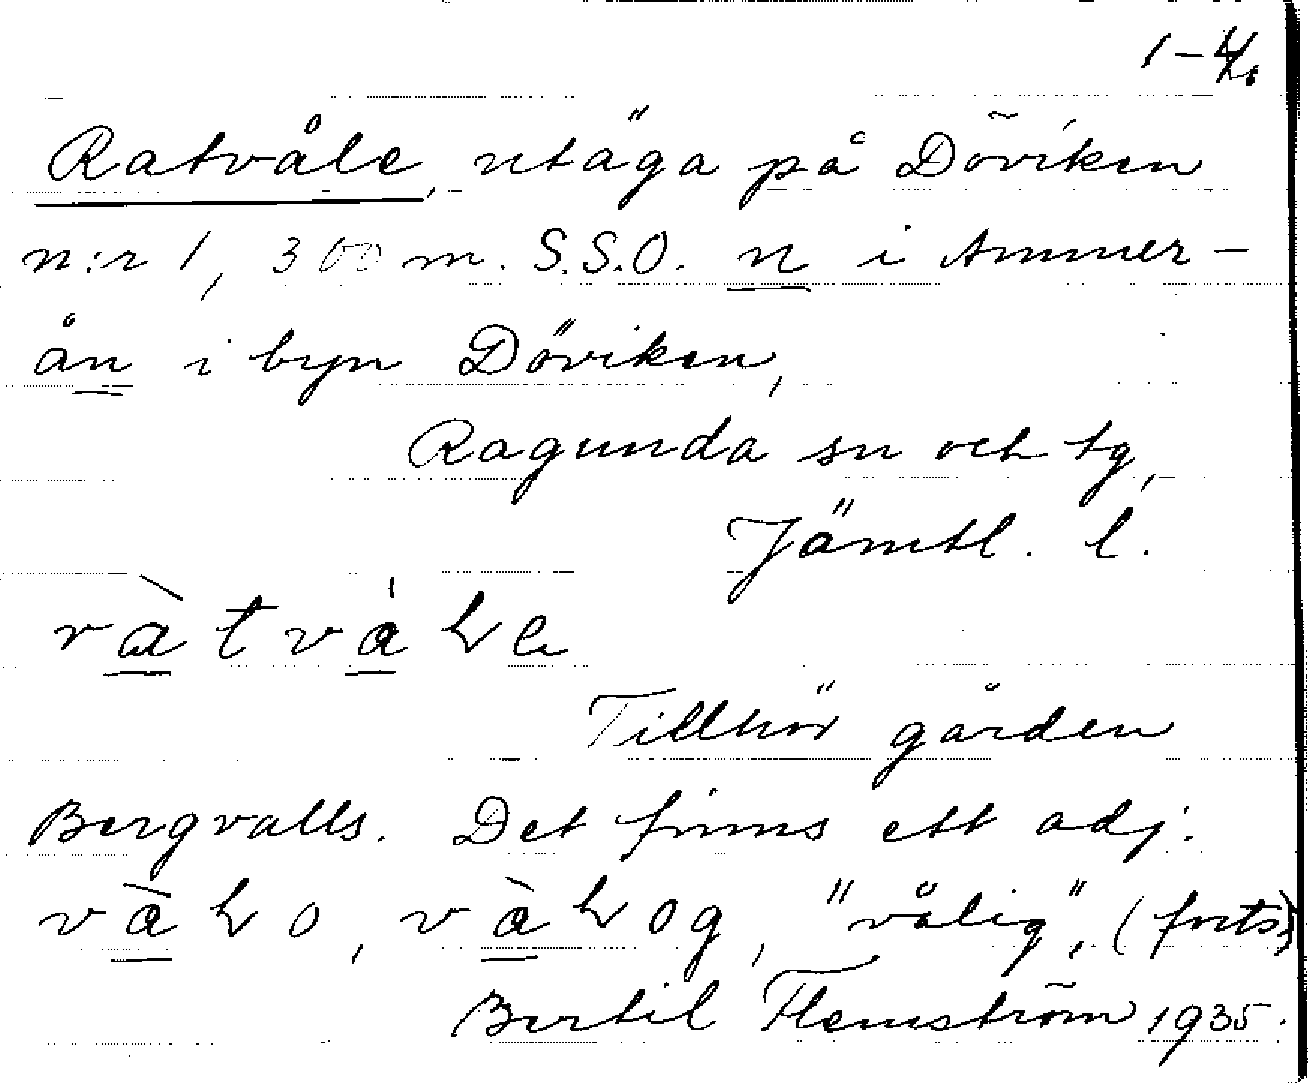 Ratvåle, utäga på Döviken
n:r 1, 300 m. S.S.O. n i Ammer-
ån i byn Döviken,
Ragunda sn och tg,
Jämtl. l.
Tillhör gården
Bergvalls. Det finns ett adj.
"vålig", (forts)
Bertil Flemström 1935.